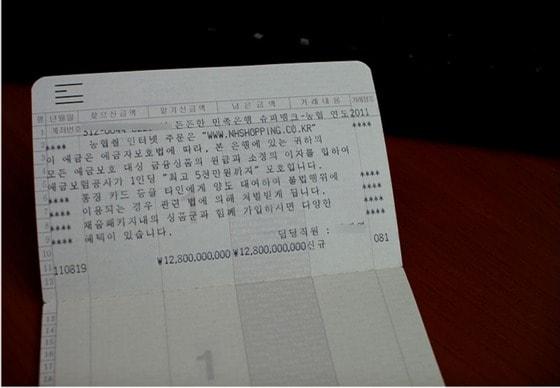 행 년월일 찾으신금액 맡기신금액 남은금액 거래내용 거래점
1 계좌번호 든든한 민족은행 슈퍼뱅크-농협 연도2011
2 **** 농협몰 인터넷 주문은 "WWW.NHSHOPPING.CO.KR" ****
3 이 예금은 예금자보호법에 따라, 본 은행에 있는 귀하의
4 모든 예금보호 대상 금융상품의 원금과 소정의 이자를 합하여
5 예금보험공사가 1인당 "최고 5천만원까지" 보호입니다.
6 **** 통장 카드 등을 타인에게 양도 대여하여 불법행위에 ****
7 **** 이용되는 경우 관련 법에 의해 처벌받게 됩니다. ****
8 **** 채움패키지내의 상품군과 함께 가입하시면 다양한 ****
9 **** 혜택이 있습니다. ****
10 담당직원 :
11 110819 ₩12,800,000,000 ₩12,800,000,000신규 081
12
13
14
15
16
17
18
1